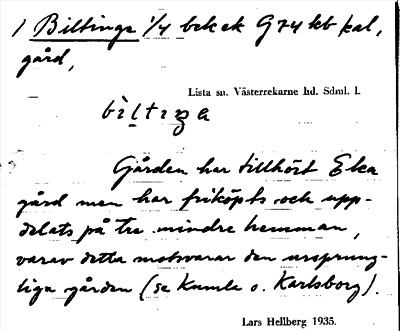 1 Biltinge 1/4 bek ek G 74 kb kal,
gård,
Lista sn. Västerrekarne hd. Sdml. l.
Gården har tillhört Eka
gård men har friköpts och upp-
delats på tre mindre hemman,
varav detta motsvarar den ursprung-
liga gården (se Kumla o. Karlsborg).
Lars Hellberg 1935.